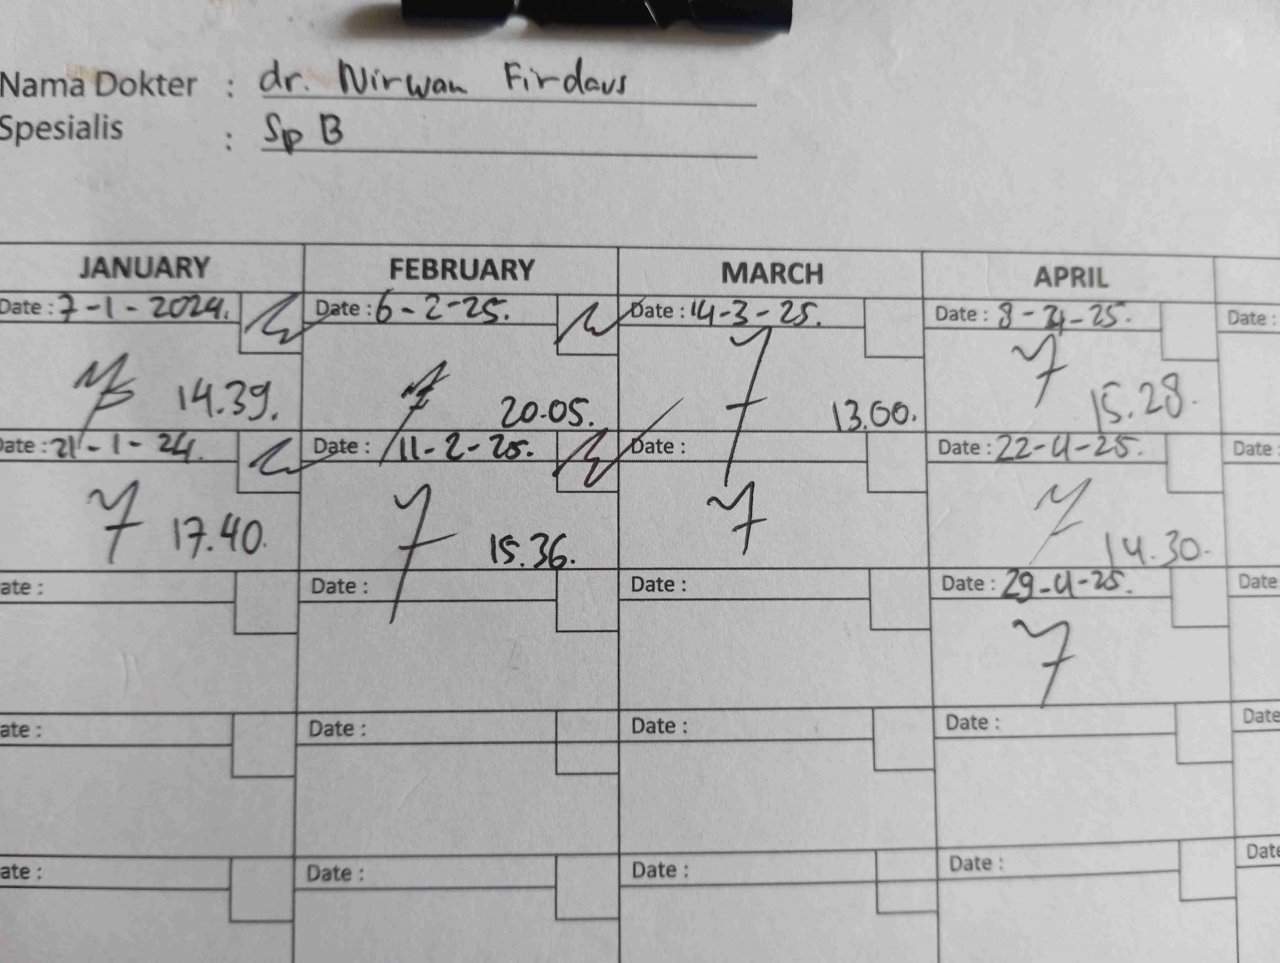 Nama Dokter : dr. Nirwan Firdaus
Spesialis : Sp B
JANUARY FEBRUARY MARCH APRIL
Date : 7-1-2024. Date : 6-2-25. Date : 14-3-25. Date : 8-4-25. Date :
14.39. 20.05. 13.00. 15.28.
Date : 21-1-24. Date : 11-2-25. Date : Date : 22-4-25. Date :
17.40. 15.36. 14.30.
ate : Date : Date : Date : 29-4-25. Date
ate : Date : Date : Date : Date
ate : Date : Date : Date : Date